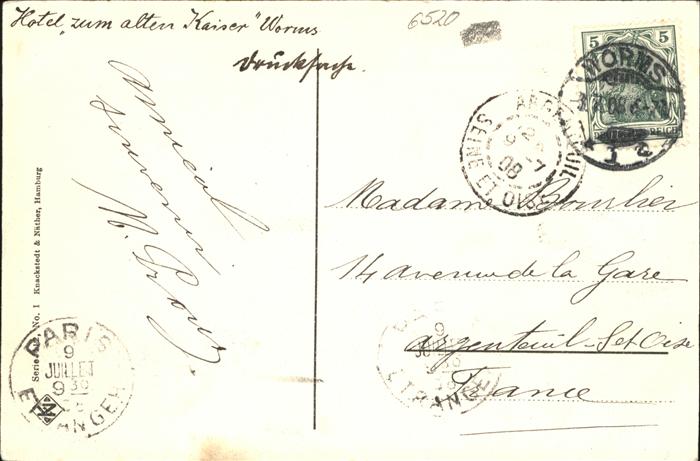 Hotel "zum alten Kaiser" Worms
6520
Drucksache.
amical
souvenir
Serie No. 1 Knackstedt & Näther, Hamburg
PARIS
9
JUILLET
9 30
ETRANGER
5
WORMS
ARGENTEUIL
9-7
08
SEINE ET OISE
Madame
14 avenue de la Gare
Argenteuil - S et Oise
France
9
ETRANGER